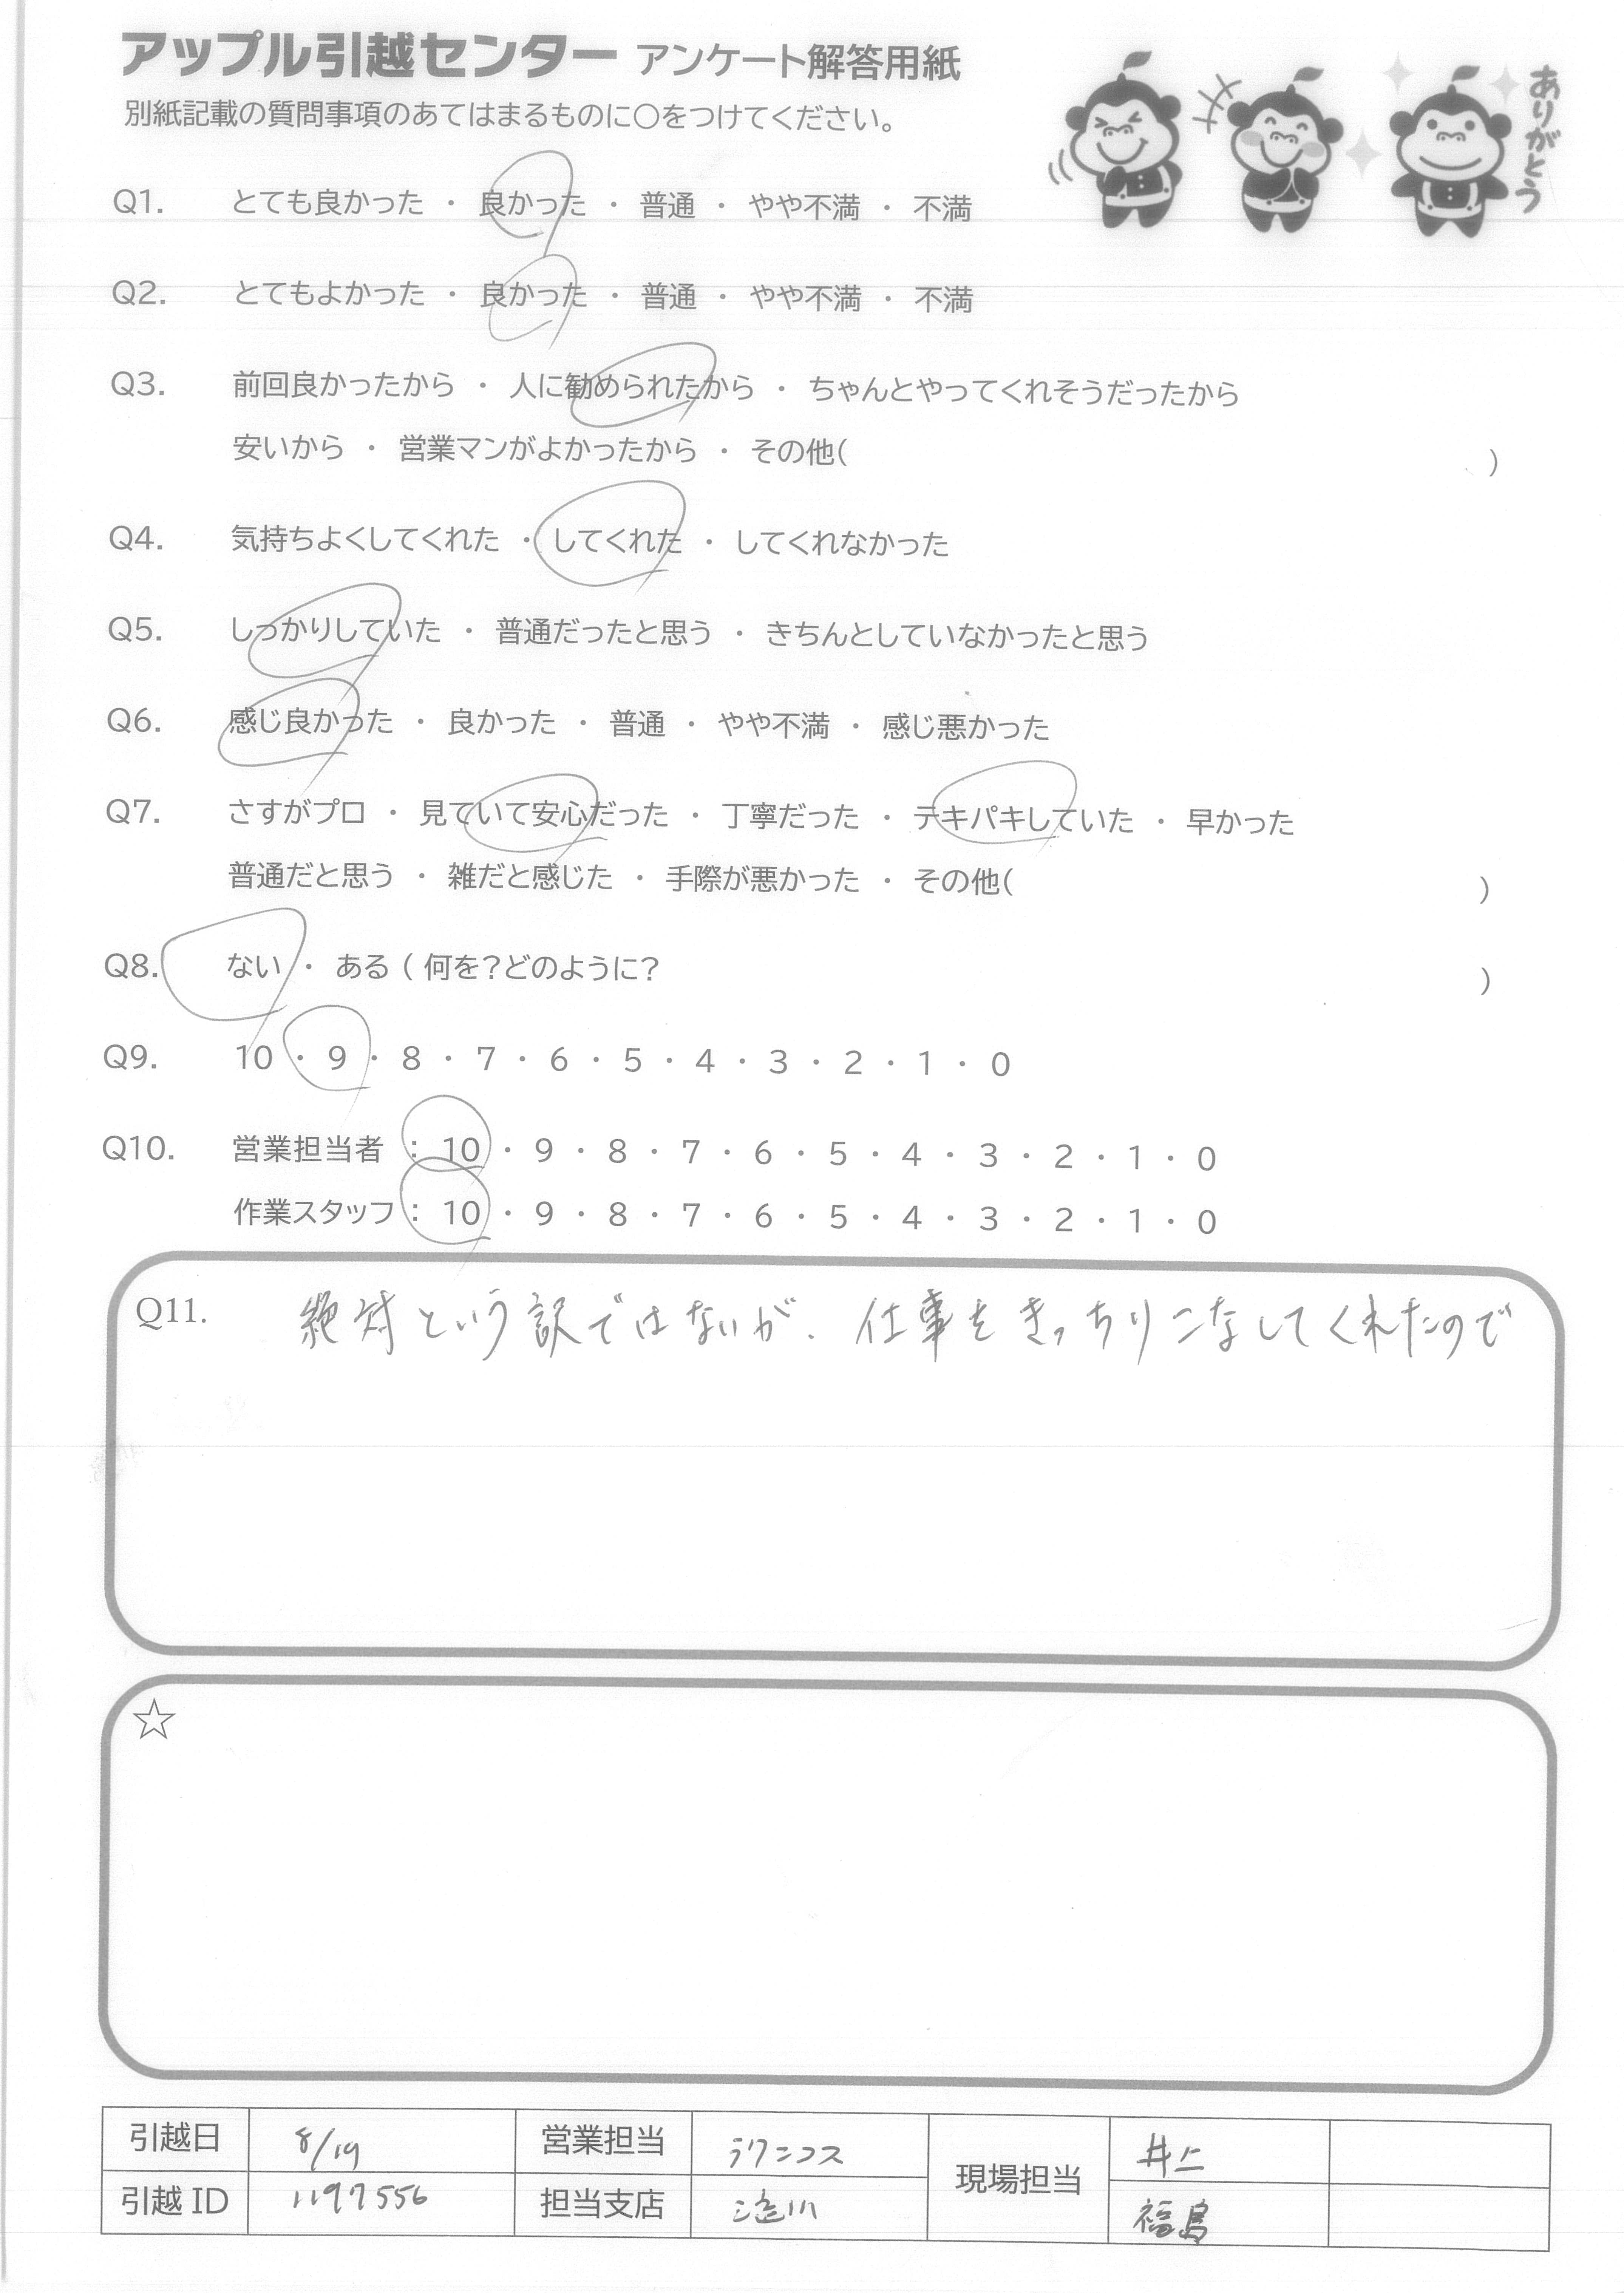 アップル引越センター アンケート解答用紙
別紙記載の質問事項のあてはまるものに○をつけてください。
ありがとう
Q1. とても良かった ・ 良かった ・ 普通 ・ やや不満 ・ 不満
Q2. とてもよかった ・ 良かった ・ 普通 ・ やや不満 ・ 不満
Q3. 前回良かったから ・ 人に勧められたから ・ ちゃんとやってくれそうだったから
安いから ・ 営業マンがよかったから ・ その他( )
Q4. 気持ちよくしてくれた ・ してくれた ・ してくれなかった
Q5. しっかりしていた ・ 普通だったと思う ・ きちんとしていなかったと思う
Q6. 感じ良かった ・ 良かった ・ 普通 ・ やや不満 ・ 感じ悪かった
Q7. さすがプロ ・ 見ていて安心だった ・ 丁寧だった ・ テキパキしていた ・ 早かった
普通だと思う ・ 雑だと感じた ・ 手際が悪かった ・ その他( )
Q8. ない ・ ある ( 何を?どのように? )
Q9. 10 ・ 9 ・ 8 ・ 7 ・ 6 ・ 5 ・ 4 ・ 3 ・ 2 ・ 1 ・ 0
Q10. 営業担当者 : 10 ・ 9 ・ 8 ・ 7 ・ 6 ・ 5 ・ 4 ・ 3 ・ 2 ・ 1 ・ 0
作業スタッフ : 10 ・ 9 ・ 8 ・ 7 ・ 6 ・ 5 ・ 4 ・ 3 ・ 2 ・ 1 ・ 0
Q11. 絶対という訳ではないが、仕事をきっちりこなしてくれたので
☆
引越日 8/19 営業担当 現場担当 井上
引越 ID 1197556 担当支店 淀川 福島